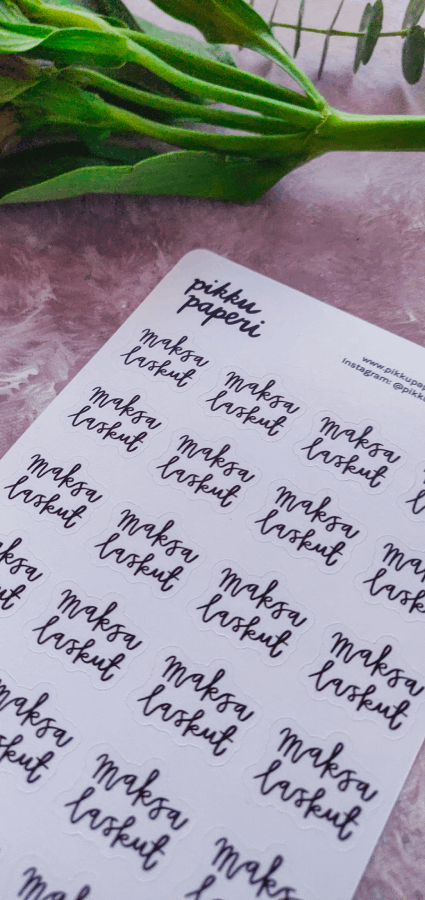 pikku
paperi
Instagram:
maksa
laskut
maksa
laskut
maksa
laskut
maksa
laskut
maksa
laskut
maksa
laskut
maksa
laskut
maksa
laskut
maksa
laskut
maksa
laskut
maksa
laskut
maksa
laskut
maksa
laskut
maksa
maksa
laskut
maksa
maksa